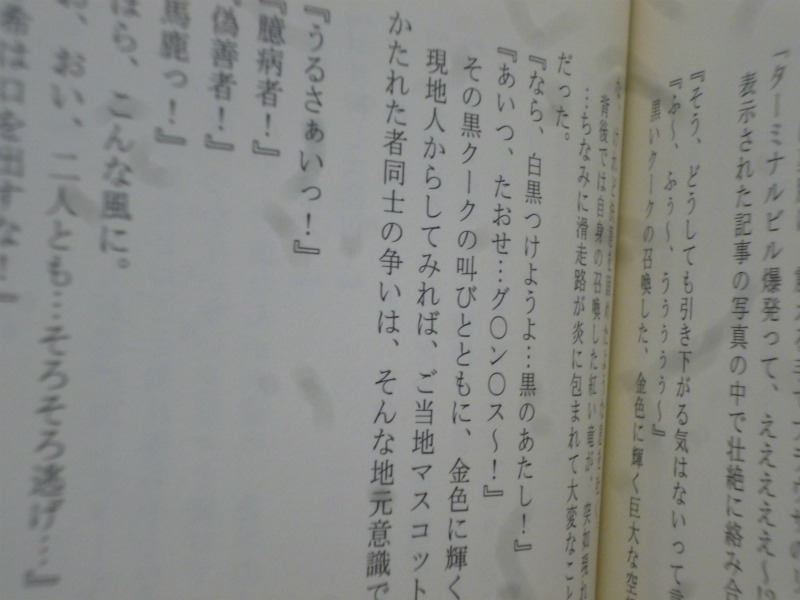 「ターミナルビル爆発って、えええええ～!?
表示された記事の写真の中で壮絶に絡み合
『そう、どうしても引き下がる気はないって
『ふ～、ふぅ～、うううぅぅ～』
黒いクークの召喚した、金色に輝く巨大な空
背後では自身の召喚した紅い竜が、突如現れ
…ちなみに滑走路が炎に包まれて大変なこと
だった。
『なら、白黒つけようよ…黒のあたし！』
『あいつ、たおせ…グ〇ン〇ス～！』
その黒クークの叫びとともに、金色に輝く
現地人からしてみれば、ご当地マスコット
かたれた者同士の争いは、そんな地元意識で
『うるさぁいっ！』
『臆病者！』
『偽善者！』
馬鹿っ！』
ほら、こんな風に。
お、おい、二人とも…そろそろ逃げ…』
希は口を出すな！』